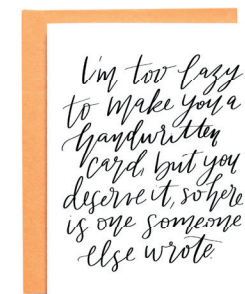 I'm too lazy
to make you a
handwritten
card, but you
deserve it, so here
is one someone
else wrote.